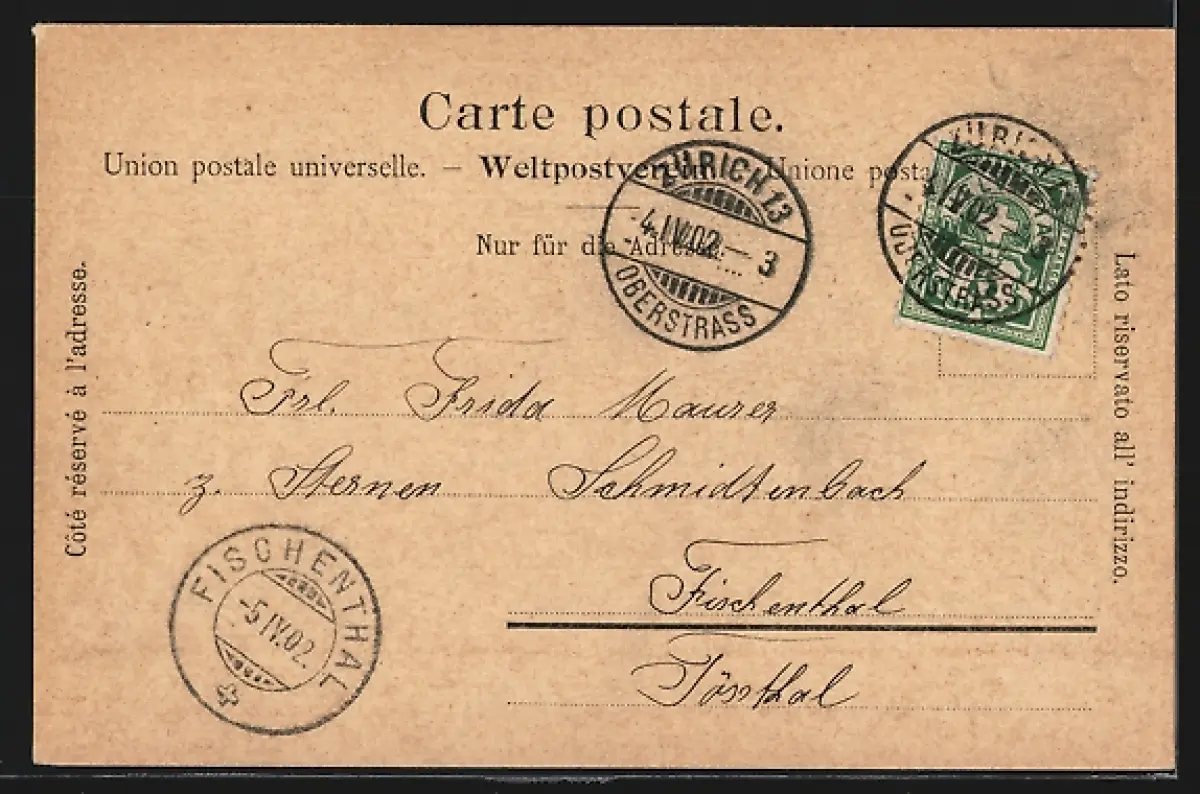 Carte postale.
Union postale universelle. – Weltpostverein. – Unione posta
Nur für die Adresse.
ZÜRICH 13
-4.IV.02.– 3
OBERSTRASS
ZÜRICH
IV.02
OBERSTRASS
Côté réservé à l'adresse.
Lato riservato all' indirizzo.
Frl. Frida Maurer
z. Sternen Schmidtenbach
Fischenthal
Tössthal
FISCHENTHAL
-5.IV.02.